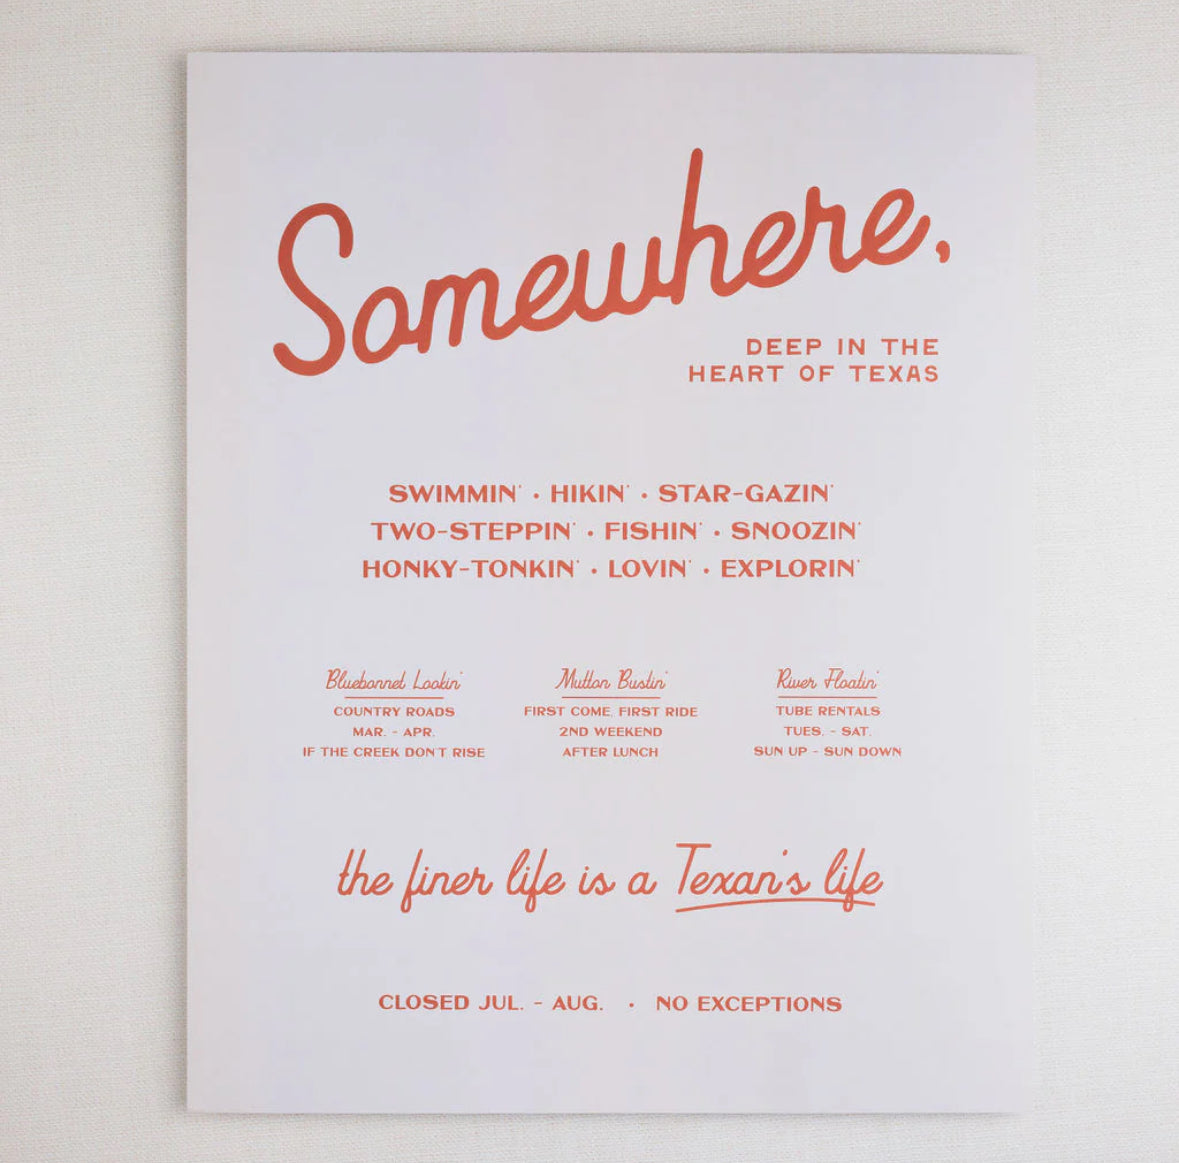 Somewhere,
DEEP IN THE
HEART OF TEXAS
SWIMMIN' · HIKIN' · STAR-GAZIN'
TWO-STEPPIN' · FISHIN' · SNOOZIN'
HONKY-TONKIN' · LOVIN' · EXPLORIN'
Bluebonnet Lookin'
COUNTRY ROADS
MAR. - APR.
IF THE CREEK DON'T RISE
Mutton Bustin'
FIRST COME, FIRST RIDE
2ND WEEKEND
AFTER LUNCH
River Floatin'
TUBE RENTALS
TUES. - SAT.
SUN UP - SUN DOWN
the finer life is a Texan's life
CLOSED JUL. - AUG. · NO EXCEPTIONS